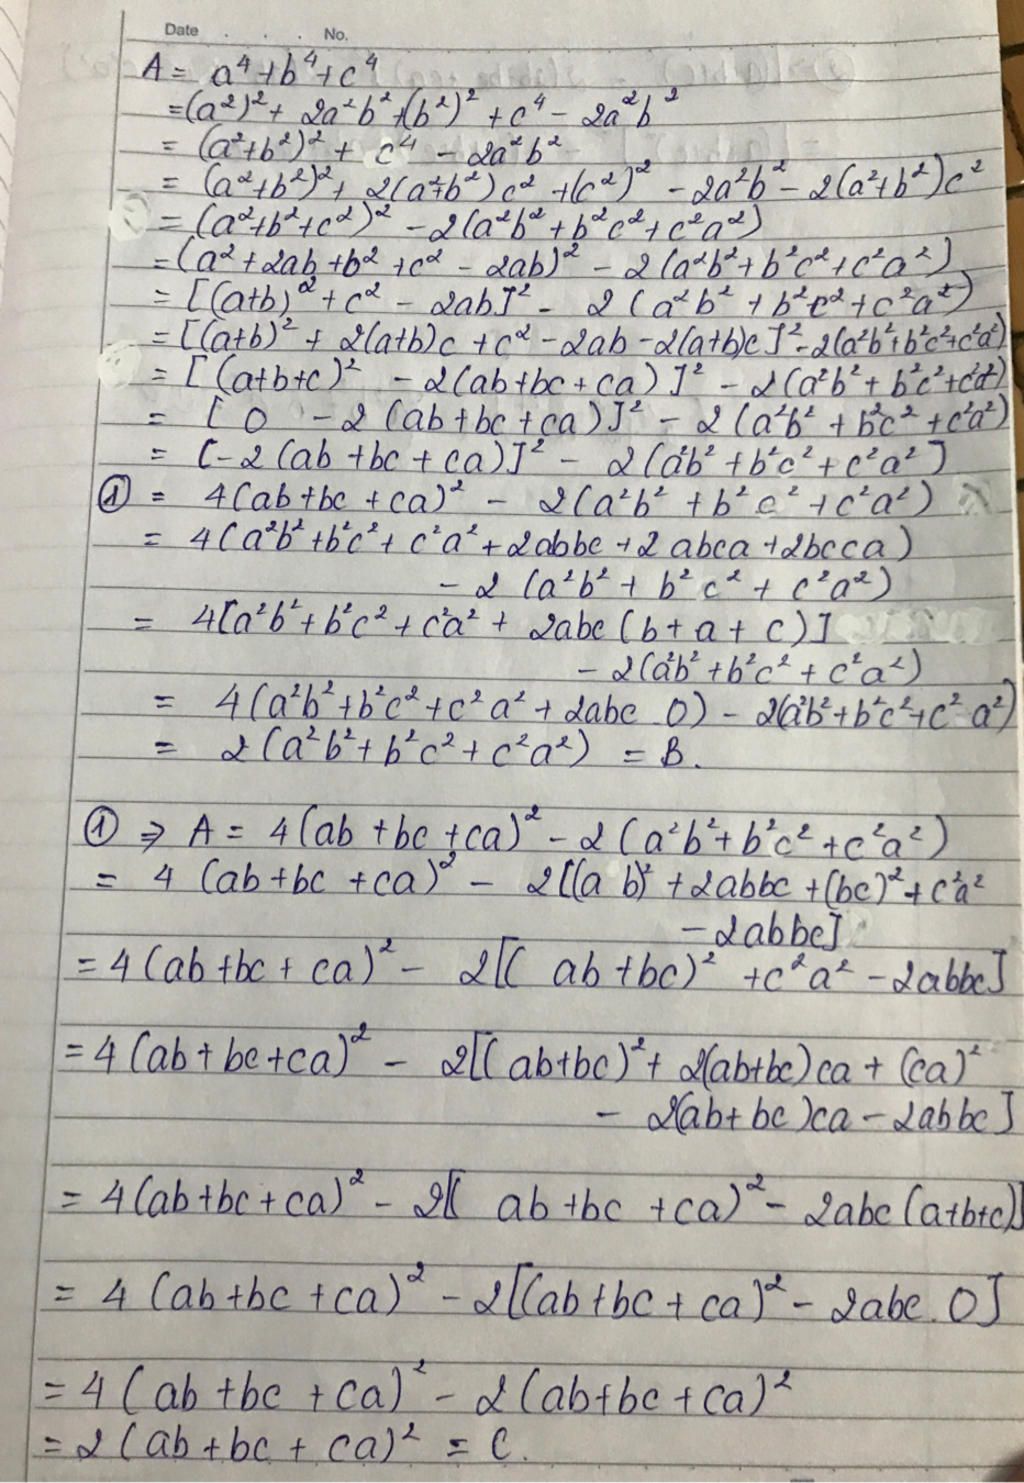 Date . . . No.
A = a⁴+b⁴+c⁴
=(a²)²+ 2a²b²+(b²)² + c⁴ - 2a²b²
= (a²+b²)² + c⁴ - 2a²b²
= (a²+b²)²+ 2(a²+b²)c² +(c²)² - 2a²b² - 2(a²+b²)c²
= (a²+b²+c²)² - 2(a²b²+b²c²+c²a²)
= (a²+2ab+b²+c² - 2ab)² - 2(a²b²+b²c²+c²a²)
= [(a+b)²+c² - 2ab]² - 2(a²b²+b²c²+c²a²)
= [(a+b)² + 2(a+b)c +c² -2ab -2(a+b)c]² -2(a²b²+b²c²+c²a²)
= [(a+b+c)² - 2(ab+bc+ca)]² - 2(a²b²+b²c²+c²a²)
= [0 - 2(ab+bc+ca)]² - 2(a²b²+b²c²+c²a²)
= [-2(ab+bc+ca)]² - 2(a²b²+b²c²+c²a²]
① = 4(ab+bc+ca)² - 2(a²b²+b²c²+c²a²)
= 4(a²b²+b²c²+c²a²+2abbc+2abca+2bcca)
- 2(a²b²+b²c²+c²a²)
= 4[a²b²+b²c²+c²a²+ 2abc(b+a+c)]
- 2(a²b²+b²c²+c²a²)
= 4(a²b²+b²c²+c²a²+2abc 0) - 2(a²b²+b²c²+c²a²)
= 2(a²b²+b²c²+c²a²) = B.
① ⇒ A = 4(ab+bc+ca)² - 2(a²b²+b²c²+c²a²)
= 4(ab+bc+ca)² - 2[(ab)²+2abbc+(bc)²+c²a²
- 2abbc]
= 4(ab+bc+ca)² - 2[(ab+bc)²+c²a² - 2abbc]
= 4(ab+bc+ca)² - 2[(ab+bc)²+ 2(ab+bc)ca + (ca)²
- 2(ab+bc)ca - 2abbc]
= 4(ab+bc+ca)² - 2[(ab+bc+ca)² - 2abc(a+b+c)]
= 4(ab+bc+ca)² - 2[(ab+bc+ca)² - 2abc.0]
= 4(ab+bc+ca)² - 2(ab+bc+ca)²
= 2(ab+bc+ca)² = C.